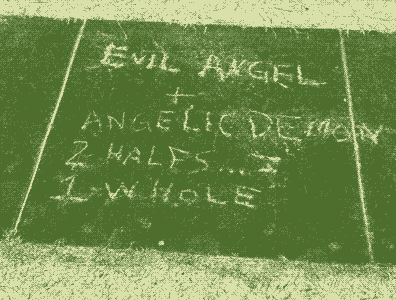 EVIL ANGEL
+
ANGELIC DEMON
2 HALFS... =
1 WHOLE